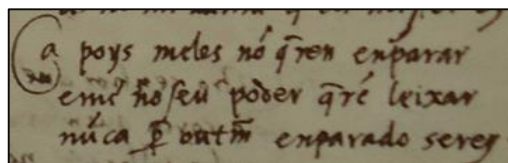 a poys meles nõ q̃ren enparar
eme no seu poder q̃rẽ leixar
nũca p̃ outrᷓ enparado serey